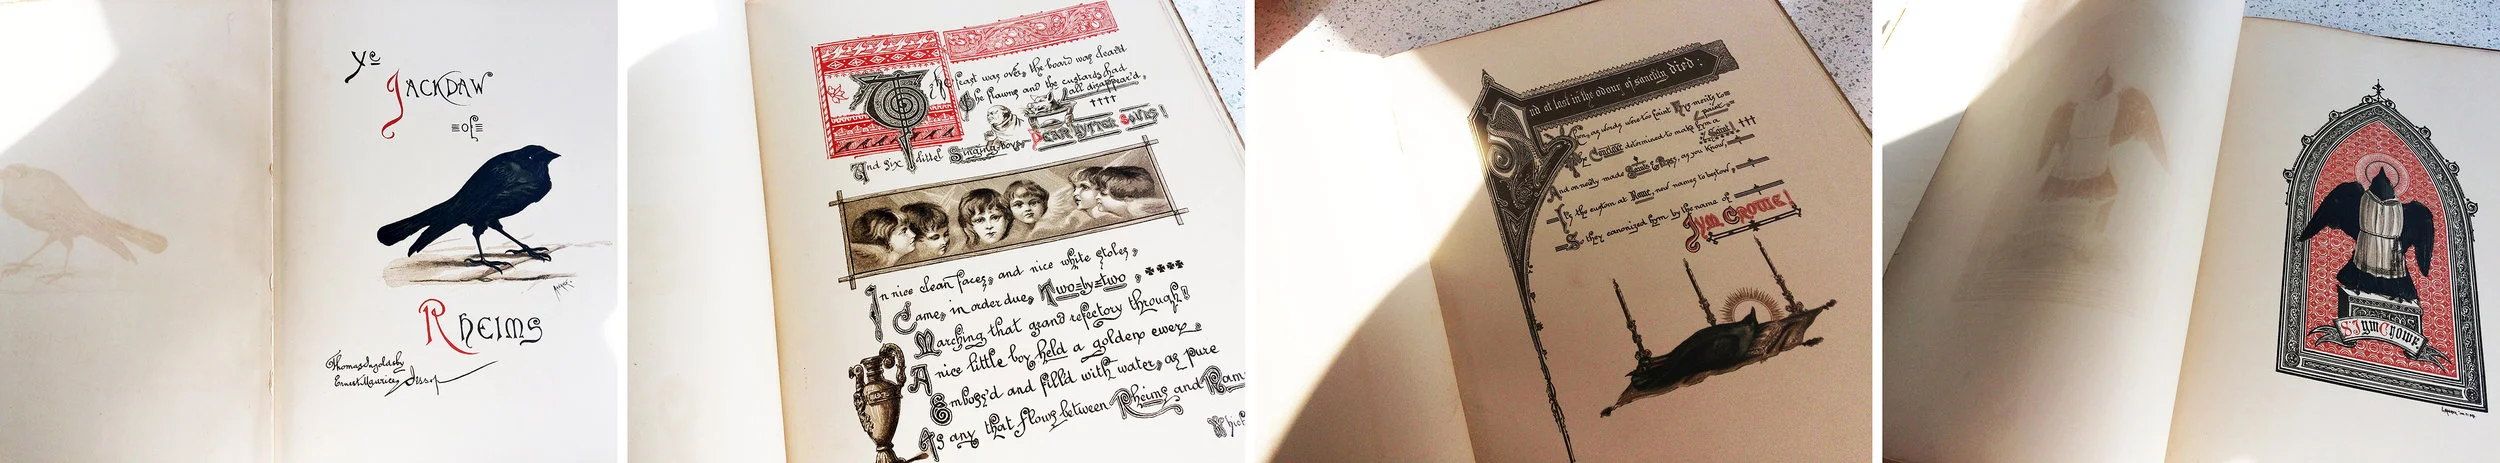 Ye
JACKDAW
OF
RHEIMS
Thomas Ingoldsby
Ernest Maurice Jessop
The feast was over, the board was clear'd
The flawns and the custards had
all disappear'd,
DEAR LYTTEL SOULS!
And six little Singing-boys
In nice clean faces, and nice white stoles,
Came, in order due, Two by two,
Marching that grand refectory through!
A nice little boy held a golden ewer,
Emboss'd and fill'd with water, as pure
As any that flows between Rheims and Nam
Which
And at last in the odour of sanctity died:
When, as words were too faint Hys merits to
paint,
The Conclave determined to make hym a
Saint!
And on newly made Saints & Popes, as you know,
It's the custom at Rome, new names to bestow,
So they canonized hym by the name of
JYM CROWE!
S. Jym Crowe.